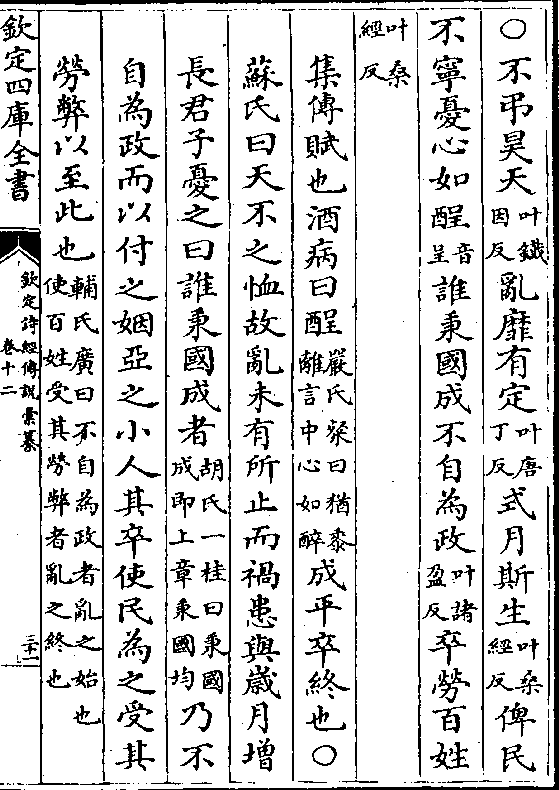 ○不弔昊天叶鐵因反亂靡有定叶唐丁反式月斯生叶桑經反俾民
不寧憂心如酲音呈誰秉國成不自為政叶諸盈反卒勞百姓
叶桑經反
集傳賦也酒病曰酲嚴氏粲曰猶黍離言中心如醉成平卒終也○
蘇氏曰天不之恤故亂未有所止而禍患與歲月增
長君子憂之曰誰秉國成者胡氏一桂曰秉國成即上章秉國均乃不
自為政而以付之姻亞之小人其卒使民為之受其
勞弊以至此也輔氏廣曰不自為政者亂之始也使百姓受其勞弊者亂之終也
欽定四庫全書
欽定詩經傳說彙纂
卷十二
三十一